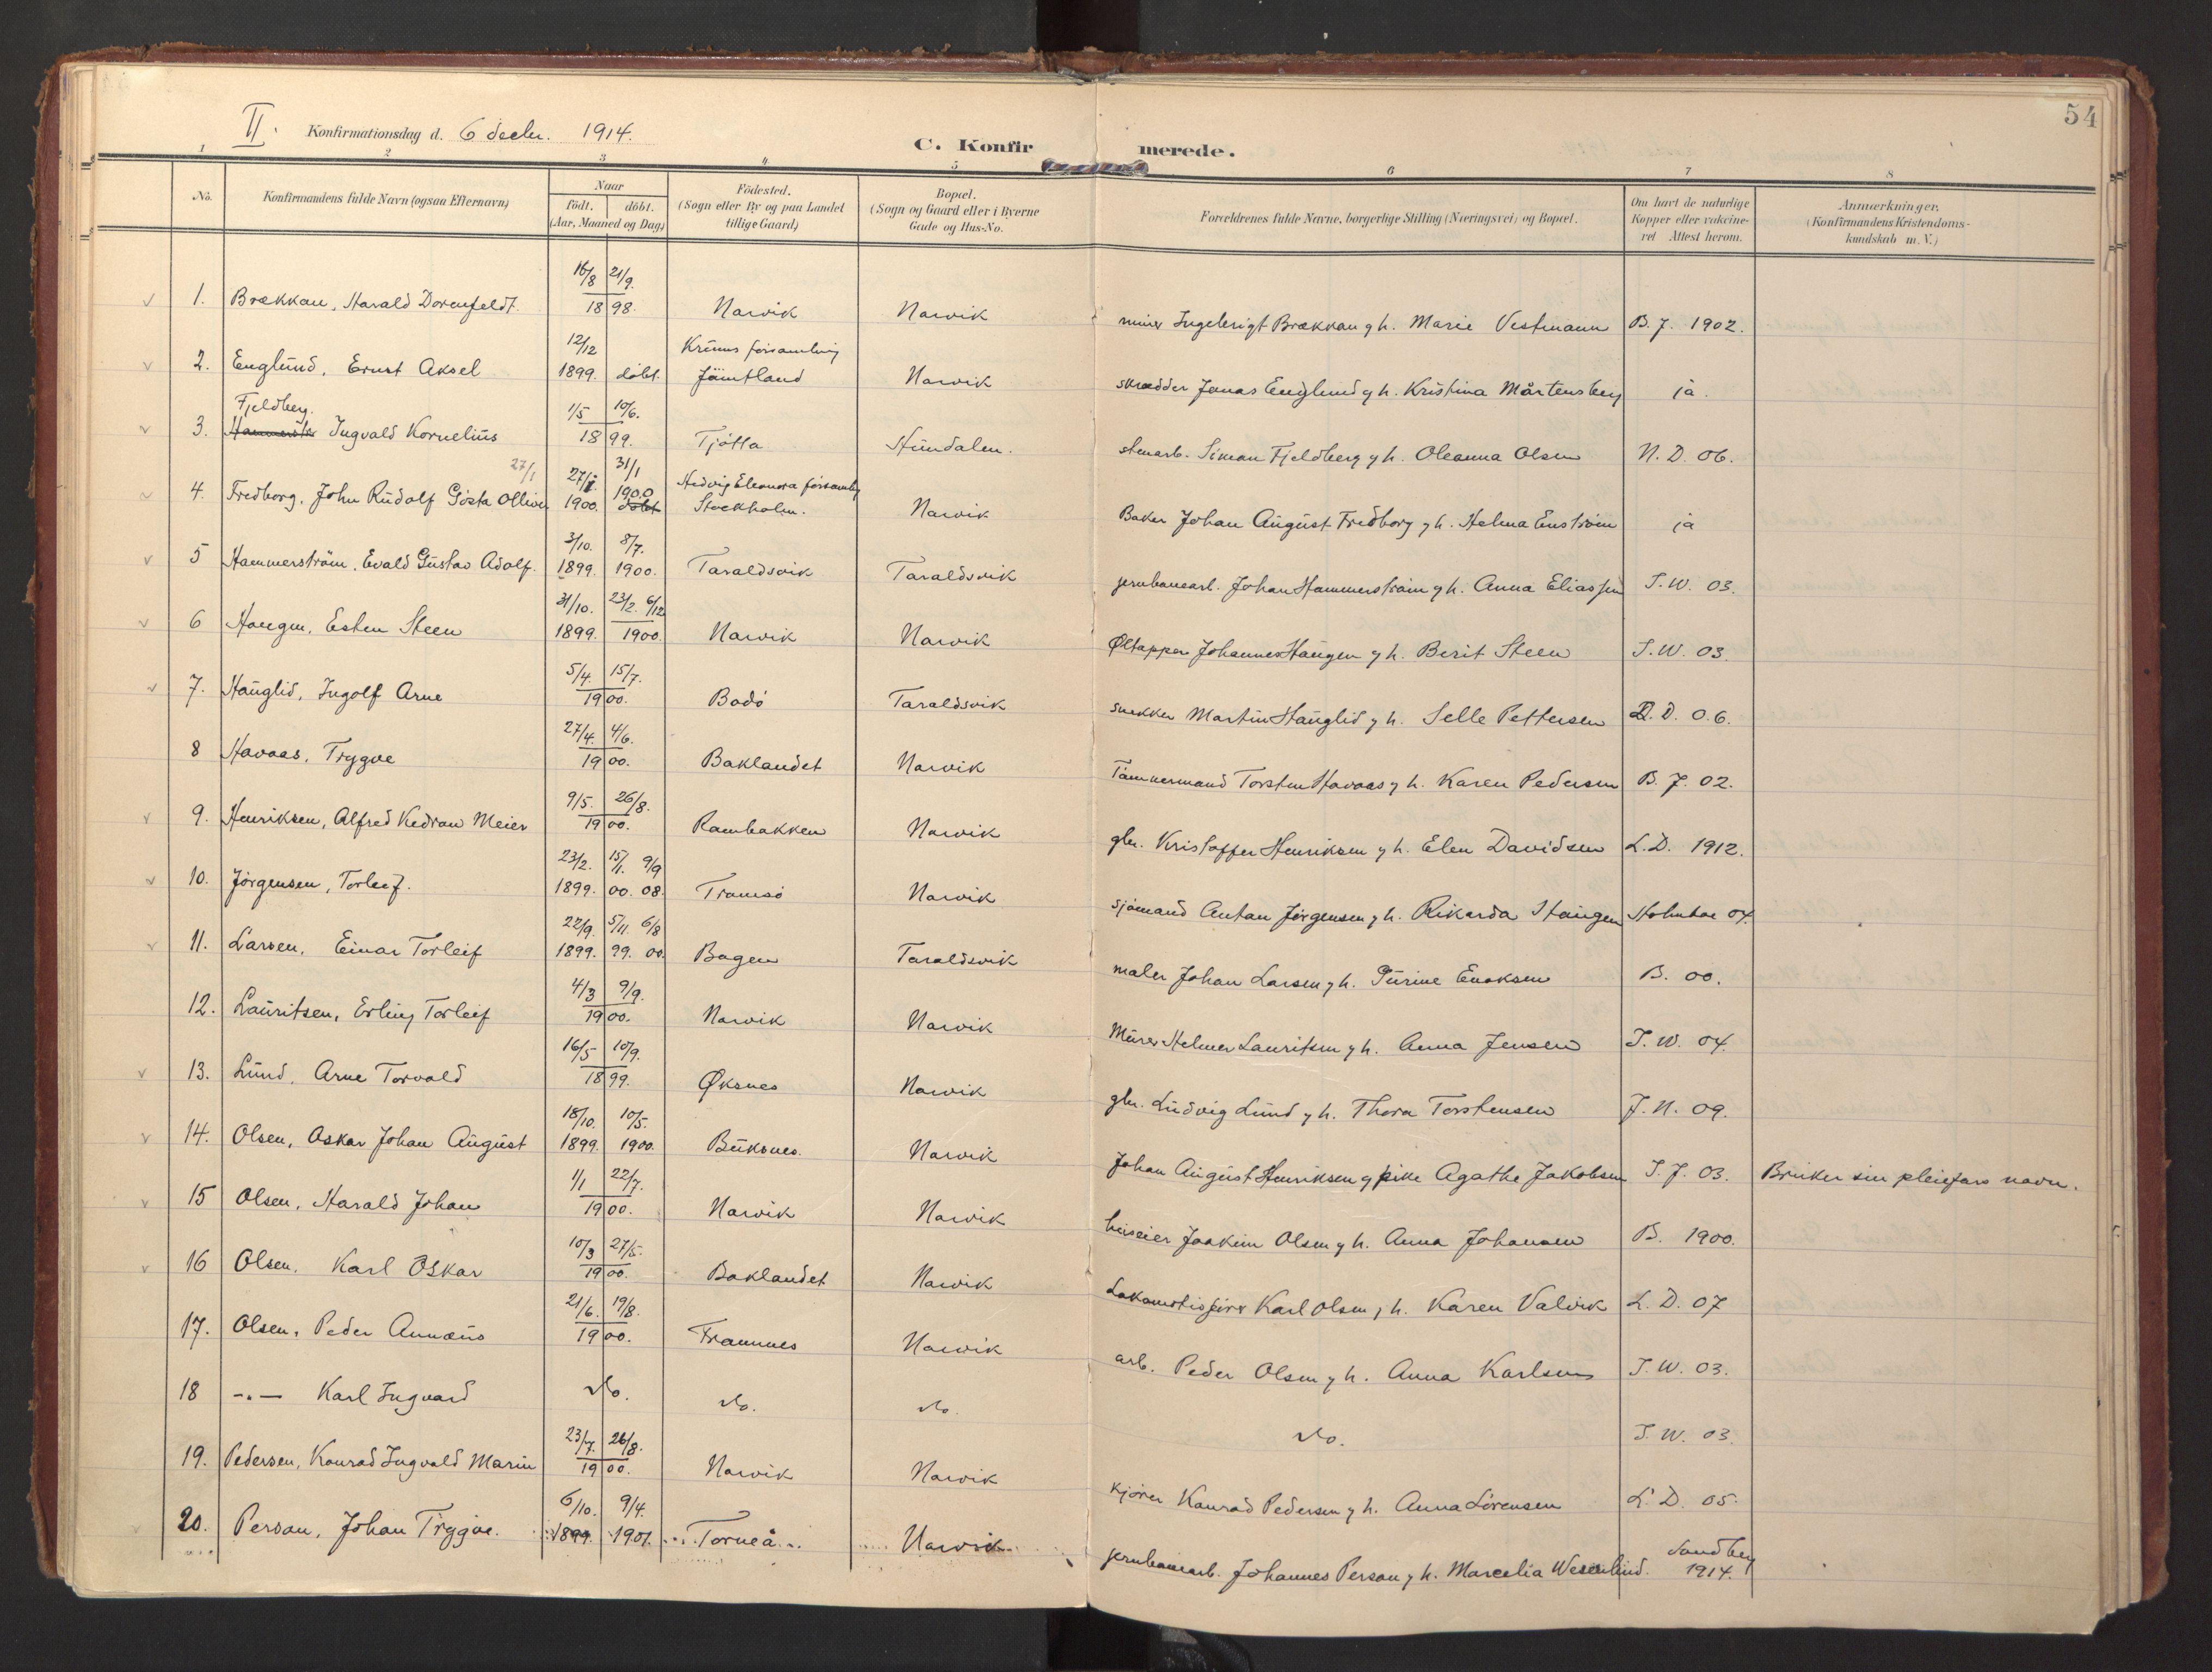 54
II. Konfirmationsdag d. 6 decbr. 1914.
C. Konfirmerede.
1 2 3 4 5 6 7 8
No. Konfirmandens fulde Navn (ogsaa Efternavn) Naar födt. döbt. (Aar, Maaned og Dag) Födested. (Sogn eller By og paa Landet tillige Gaard) Bopæl. (Sogn og Gaard eller i Byerne Gade og Hus-No. Forældrenes fulde Navne, borgerlige Stilling (Næringsvei) og Bopæl. Om havt de naturlige Kopper eller vakcineret Attest herom. Anmærkninger. (Konfirmandens Kristendomskundskab m. V.)
1. Brækkan, Harald Dorenfeldt. 16/8 21/9. 1898. Narvik Narvik miner Ingebrigt Brækkan & h. Marie Vestmann B. J. 1902.
2. Englund, Ernst Aksel 12/12 1899. döbt. Jämtland Narvik skrædder Jonas Englund & h. Kristina Mårtensberg ja.
Fjeldberg.
3. Ingvald Kornelius 1/5 10/6. 1899. Tjötta Hundalen. stenarb. Simon Fjeldberg & h. Oleanna Olsen N. D. 06.
27/1
4. Fredborg, John Rudolf Gösta Olliver 27/1. 1900. 31/1 1900 döbt Hedvig Eleonora församling Stockholm. Narvik Baker Johan August Fredborg & h. Helma Enström ja
5 Hammerström, Evald Gustav Adolf. 3/10. 1899. 8/7. 1900. Taraldsvik Taraldsvik jernbanearb. Johan Hammerström & h. Anna Eliassen T. W. 03.
6 Haugen, Esten Steen 31/10. 1899. 23/2. 6/12 1900. Narvik Narvik Øltapper Johannes Haugen & h. Berit Steen T. W. 03.
7. Hauglid, Ingolf Arne 5/4. 15/7. 1900. Bodö Taraldsvik snekker Martin Hauglid & h. Selle Pettersen D. 06.
8 Havaas, Trygve 27/4. 4/6. 1900. Baklandet Narvik Tömmermand Torsten Havaas & h. Karen Pedersen B. J. 02.
9. Henriksen, Alfred Kedvan Meier 9/5. 26/8. 1900. Rambakken Narvik gbr. Kristoffer Henriksen & h. Elen Davidsen L. D. 1912.
10. Jörgensen, Torleif. 23/2. 1899. 15/1. 00. 9/9 08. Tromsö Narvik sjömand Anton Jörgensen & h. Rikarda Haugen Holmboe 04.
11. Larsen, Einar Torleif 22/9. 1899. 5/11. 99. 6/8 00. Bogen Taraldsvik maler Johan Larsen & h. Purine Enoksen B. 00.
12. Lauritsen, Erling Torleif 4/3 9/9. 1900. Narvik Narvik Murer Helmer Lauritsen & h. Anna Jensen T. W. 04.
13. Lund, Arne Torvald 16/5 10/9. 1899. Øksnes Narvik gbr. Ludvig Lund & h. Thora Torstensen J. N. 09.
14. Olsen, Oskar Johan August 18/10. 1899. 10/5. 1900. Buksnes. Narvik Johan August Henriksen & pike Agathe Jakobsen T. J. 03. Bruker sin pleiefars navn.
15 Olsen, Harald Johan 1/1 22/7. 1900. Narvik Narvik huseier Joakim Olsen & h. Anna Johansen B. 1900.
16 Olsen, Karl Oskar 10/3 27/5. 1900. Baklandet Narvik Lokomotivförer Karl Olsen & h. Karen Valvik L. D. 07
17. Olsen, Peder Annæus 21/6. 19/8. 1900. Framnes Narvik arb. Peder Olsen & h. Anna Karlsen T. W. 03.
18 -.- Karl Ingvard do. do. do. do. T. W. 03.
19. Pedersen, Konrad Ingvald Marin 23/7. 26/8. 1900. Narvik Narvik kjörer Konrad Pedersen & h. Anna Sörensen L. D. 05.
20. Person, Johan Trygve. 6/10. 1899. 9/4. 1901. Torneå Narvik jernbanearb. Johannes Person & h. Marcelia Westerlund. Sandberg 1914.